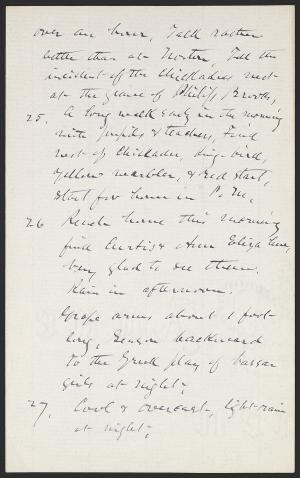 over an hour, Talk rather
better than at Norton, Tell the
incident of the Chickadees nest
at the grave of Philip Brooks,
25, A long walk early in the morning
with pupils & teachers, Find
nest of Chickadee, king-bird,
yellow warbler, & Red start,
Start for home in P.M.
26 Reach home this morning
find Curtis & Ann Eliza here,
very glad to see them.
Rain in afternoon.
Grape arms about 1 foot
long, Season backward
to the Greek play of Vassar
girls at night;
27, Cool & overcast, light rain
at night;